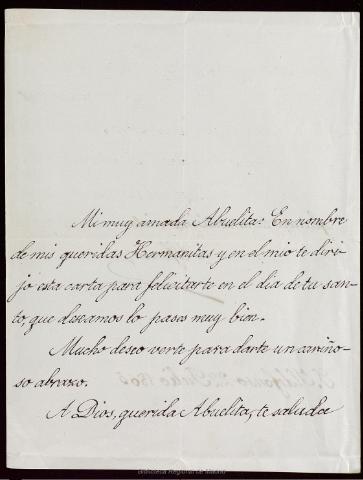 Mi muy amada Abuelita: En nombre
de mis queridas Hermanitas y en el mio te diri-
jo esta carta para felicitarte en el dia de tu san-
to, que deseamos lo pases muy bien.
Mucho deseo verte para darte un cariño-
so abrazo.
A Dios, querida Abuelita, te saluda
Biblioteca Regional de Madrid